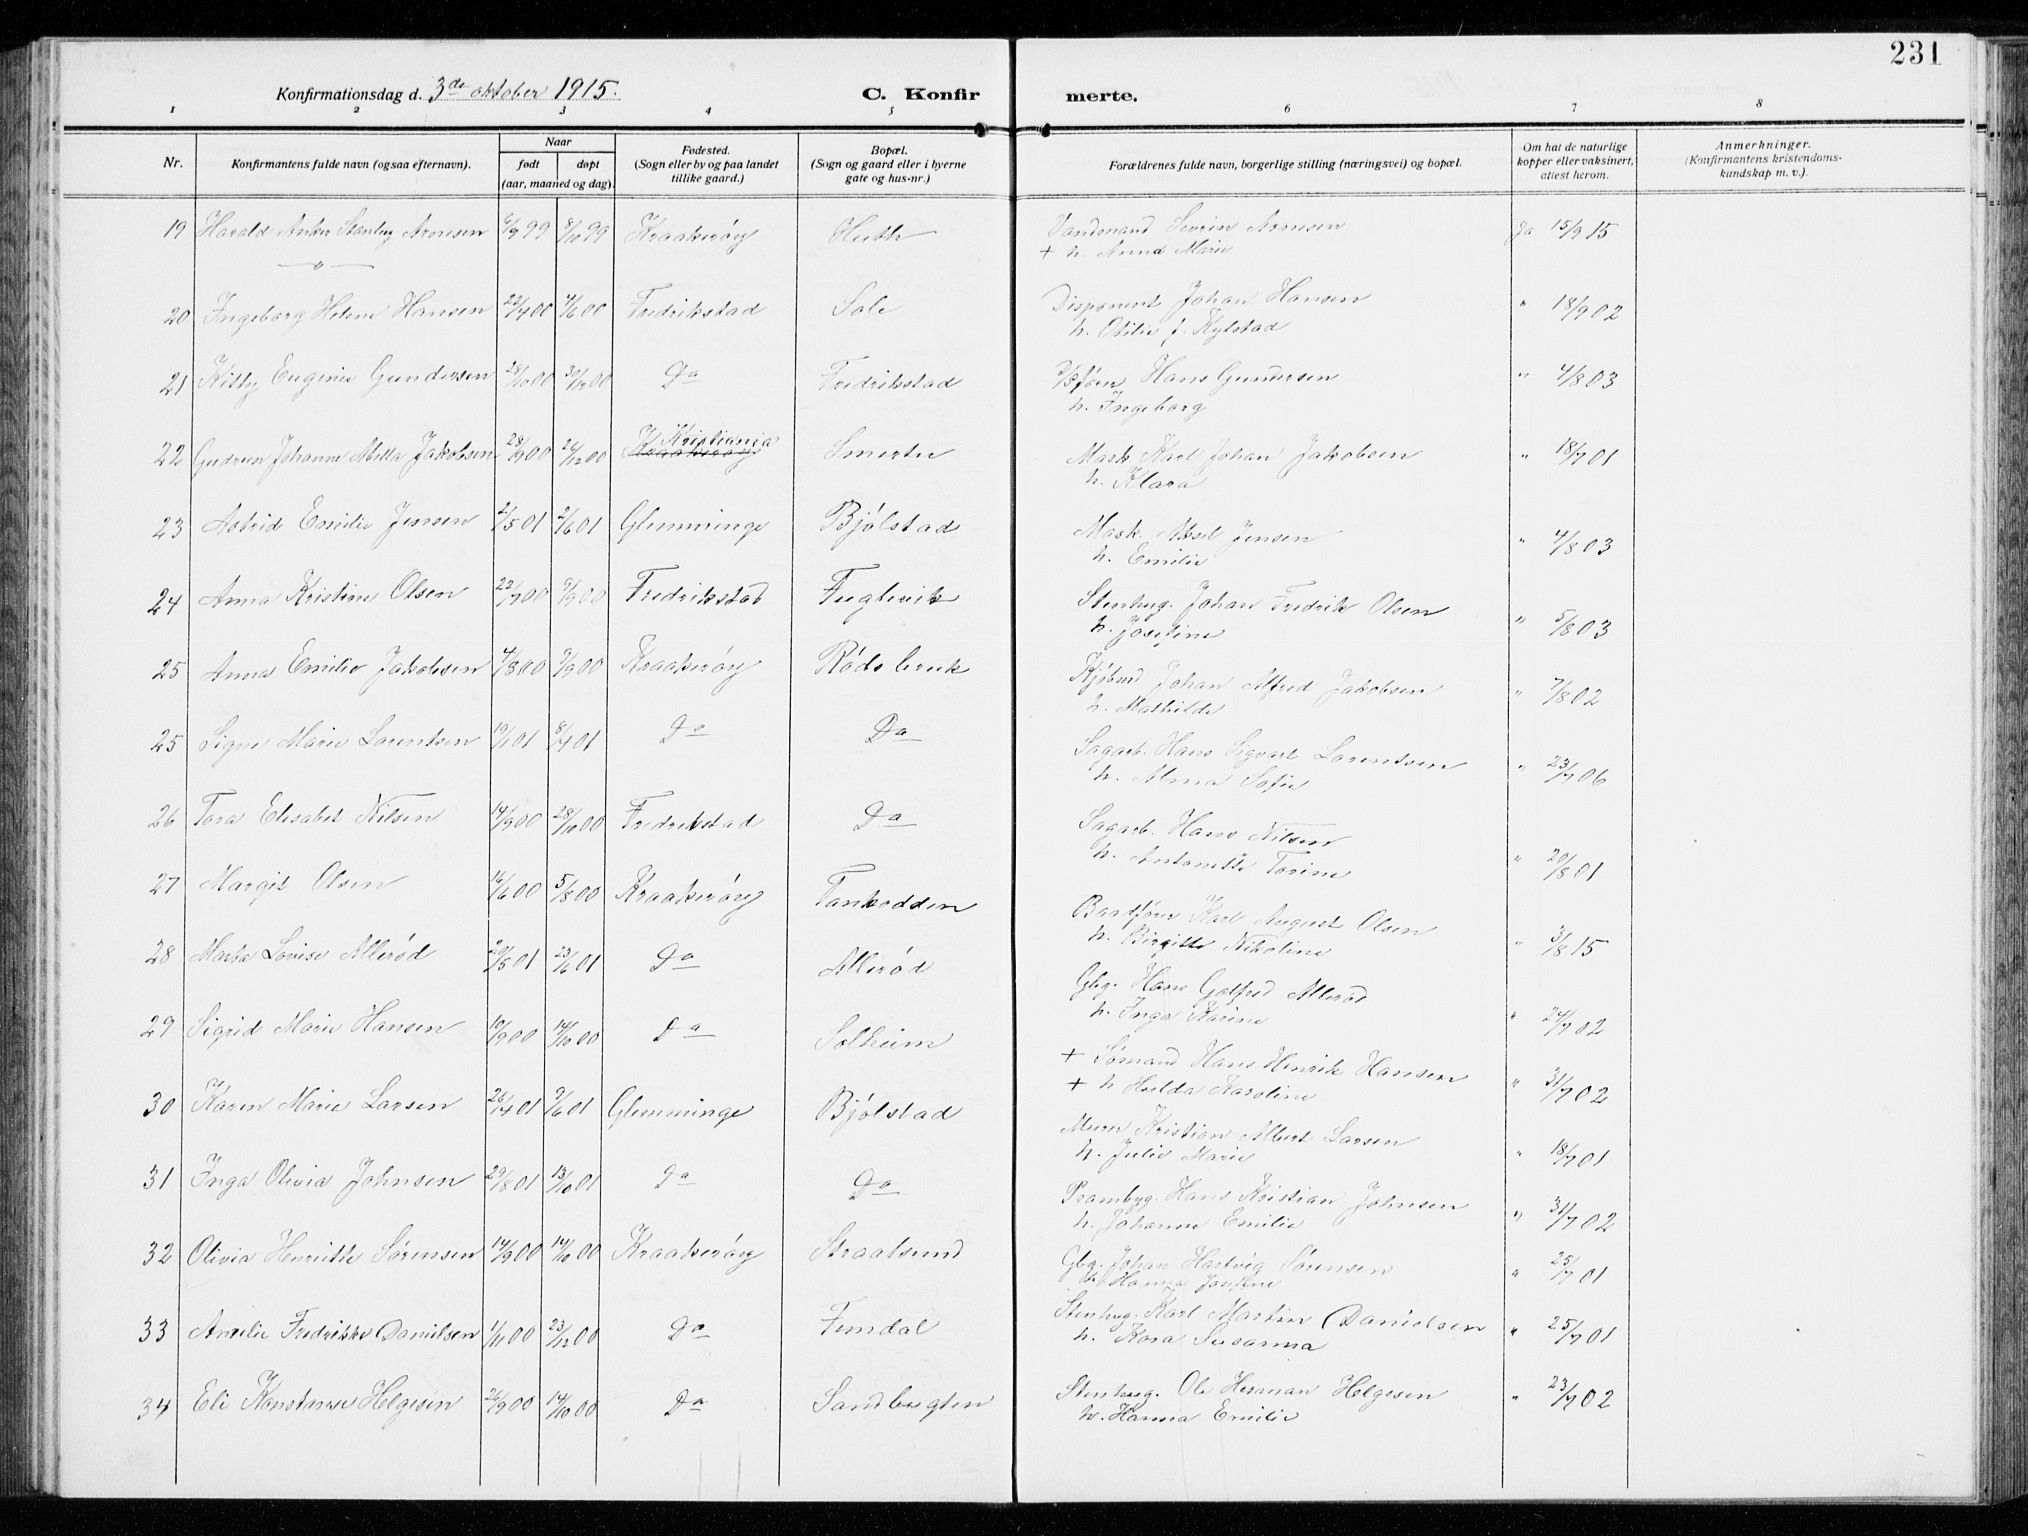 231
Konfirmationsdag d. 3de oktober 1915. C. Konfirmerte.
1 2 3 4 5 6 7 8
Nr. Konfirmantens fulde navn (ogsaa efternavn). Naar født døpt (aar, maaned og dag). Fødested. (Sogn eller by og paa landet tillike gaard.) Bopæl. (Sogn og gaard eller i byerne gate og hus-nr.) Forældrenes fulde navn, borgerlige stilling (næringsvei) og bopæl. Om hat de naturlige kopper eller vaksinert, atiest herom. Anmerkninger. (Konfirmantens kristendomskundskap m. v.).
19 Harald Anker Stanley Arnesen 6/9 99 8/10 99 Kraakerøy Huth Vandmand Severin Arnesen Ja 15/9 15
+ h. Anna Marie
— " —
20 Ingeborg Helene Hansen 22/4 00 4/6 00 Fredrikstad Sole Disponent Johan Hansen " 18/9 02
h. Otilie f. Kylstad
21 Kitty Eugenie Gundersen 28/10 00 30/12 00 Do Fredrikstad Hans Gundersen " 4/8 03
h. Ingeborg
22 Gudrun Johanne Mella Jakobsen 28/9 00 26/12 00 Kraakerøy Kristiania Smertu Mask Karl Johan Jakobsen " 18/7 01
h. Klara
23 Astrid Emilie Jensen 2/5 01 2/6 01 Glemminge Bjølstad Mask. Aksel Jensen " 4/8 03
h. Emilie
24 Anna Kristine Olsen 22/7 00 9/9 00 Fredrikstad Fuglevik Stenhug. Johan Fredrik Olsen " 5/8 03
h. Josefine
25 Anna Emilie Jakobsen 4/8 00 9/9 00 Kraakerøy Røds bruk Kjøbmd Johan Alfred Jakobsen " 7/8 02
h. Mathilde
25 Signe Marie Lorentsen 19/1 01 8/4 01 Do Do Sagarb. Hans Sigvart Lorentsen " 23/7 06
h. Alma Sofie
26 Tora Elisabet Nilsen 14/9 00 28/10 00 Fredrikstad Do Sagarb. Hans Nilsen " 20/8 01
h. Antonette Torine
27 Margit Olsen 16/6 00 5/8 00 Kraakerøy Tankodden Baadfører Karl August Olsen " 3/8 15
h. Birgitte Nikoline
28 Marta Lovise Allerød 20/5 01 23/6 01 Do Allerød Gbg. Hans Gotfred Allerød " 24/7 02
h. Inga Karine
29 Sigrid Marie Hansen 10/9 00 14/10 00 Do Solheim + Sømand Hans Henrik Hansen " 31/7 02
+ h Hulda Karoline
30 Karen Marie Larsen 26/4 01 9/6 01 Glemminge Bjølstad Murer Kristian Albert Larsen " 18/7 01
h. Julie Marie
31 Inga Olivia Johnsen 29/8 01 13/10 01 Do Do Prambyg. Hans Kristian Johnsen " 31/7 02
h. Johanne Emilie
32 Olivia Henriette Sørensen 14/9 00 14/10 00 Kraakerøy Straalsund Gbg. Johan Hartvig Sørensen " 25/7 01
h. Hanna Josefine
33 Amelie Fredrikke Danielsen 1/11 00 23/12 00 Do Femdal Stenhug. Karl Martin Danielsen " 25/7 01
h. Kora Susanna
34 Eli Konstanse Helgesen 26/9 00 14/10 00 Do Sandbugten Stenhug. Ole Herman Helgesen " 23/7 02
h. Hanna Emilie